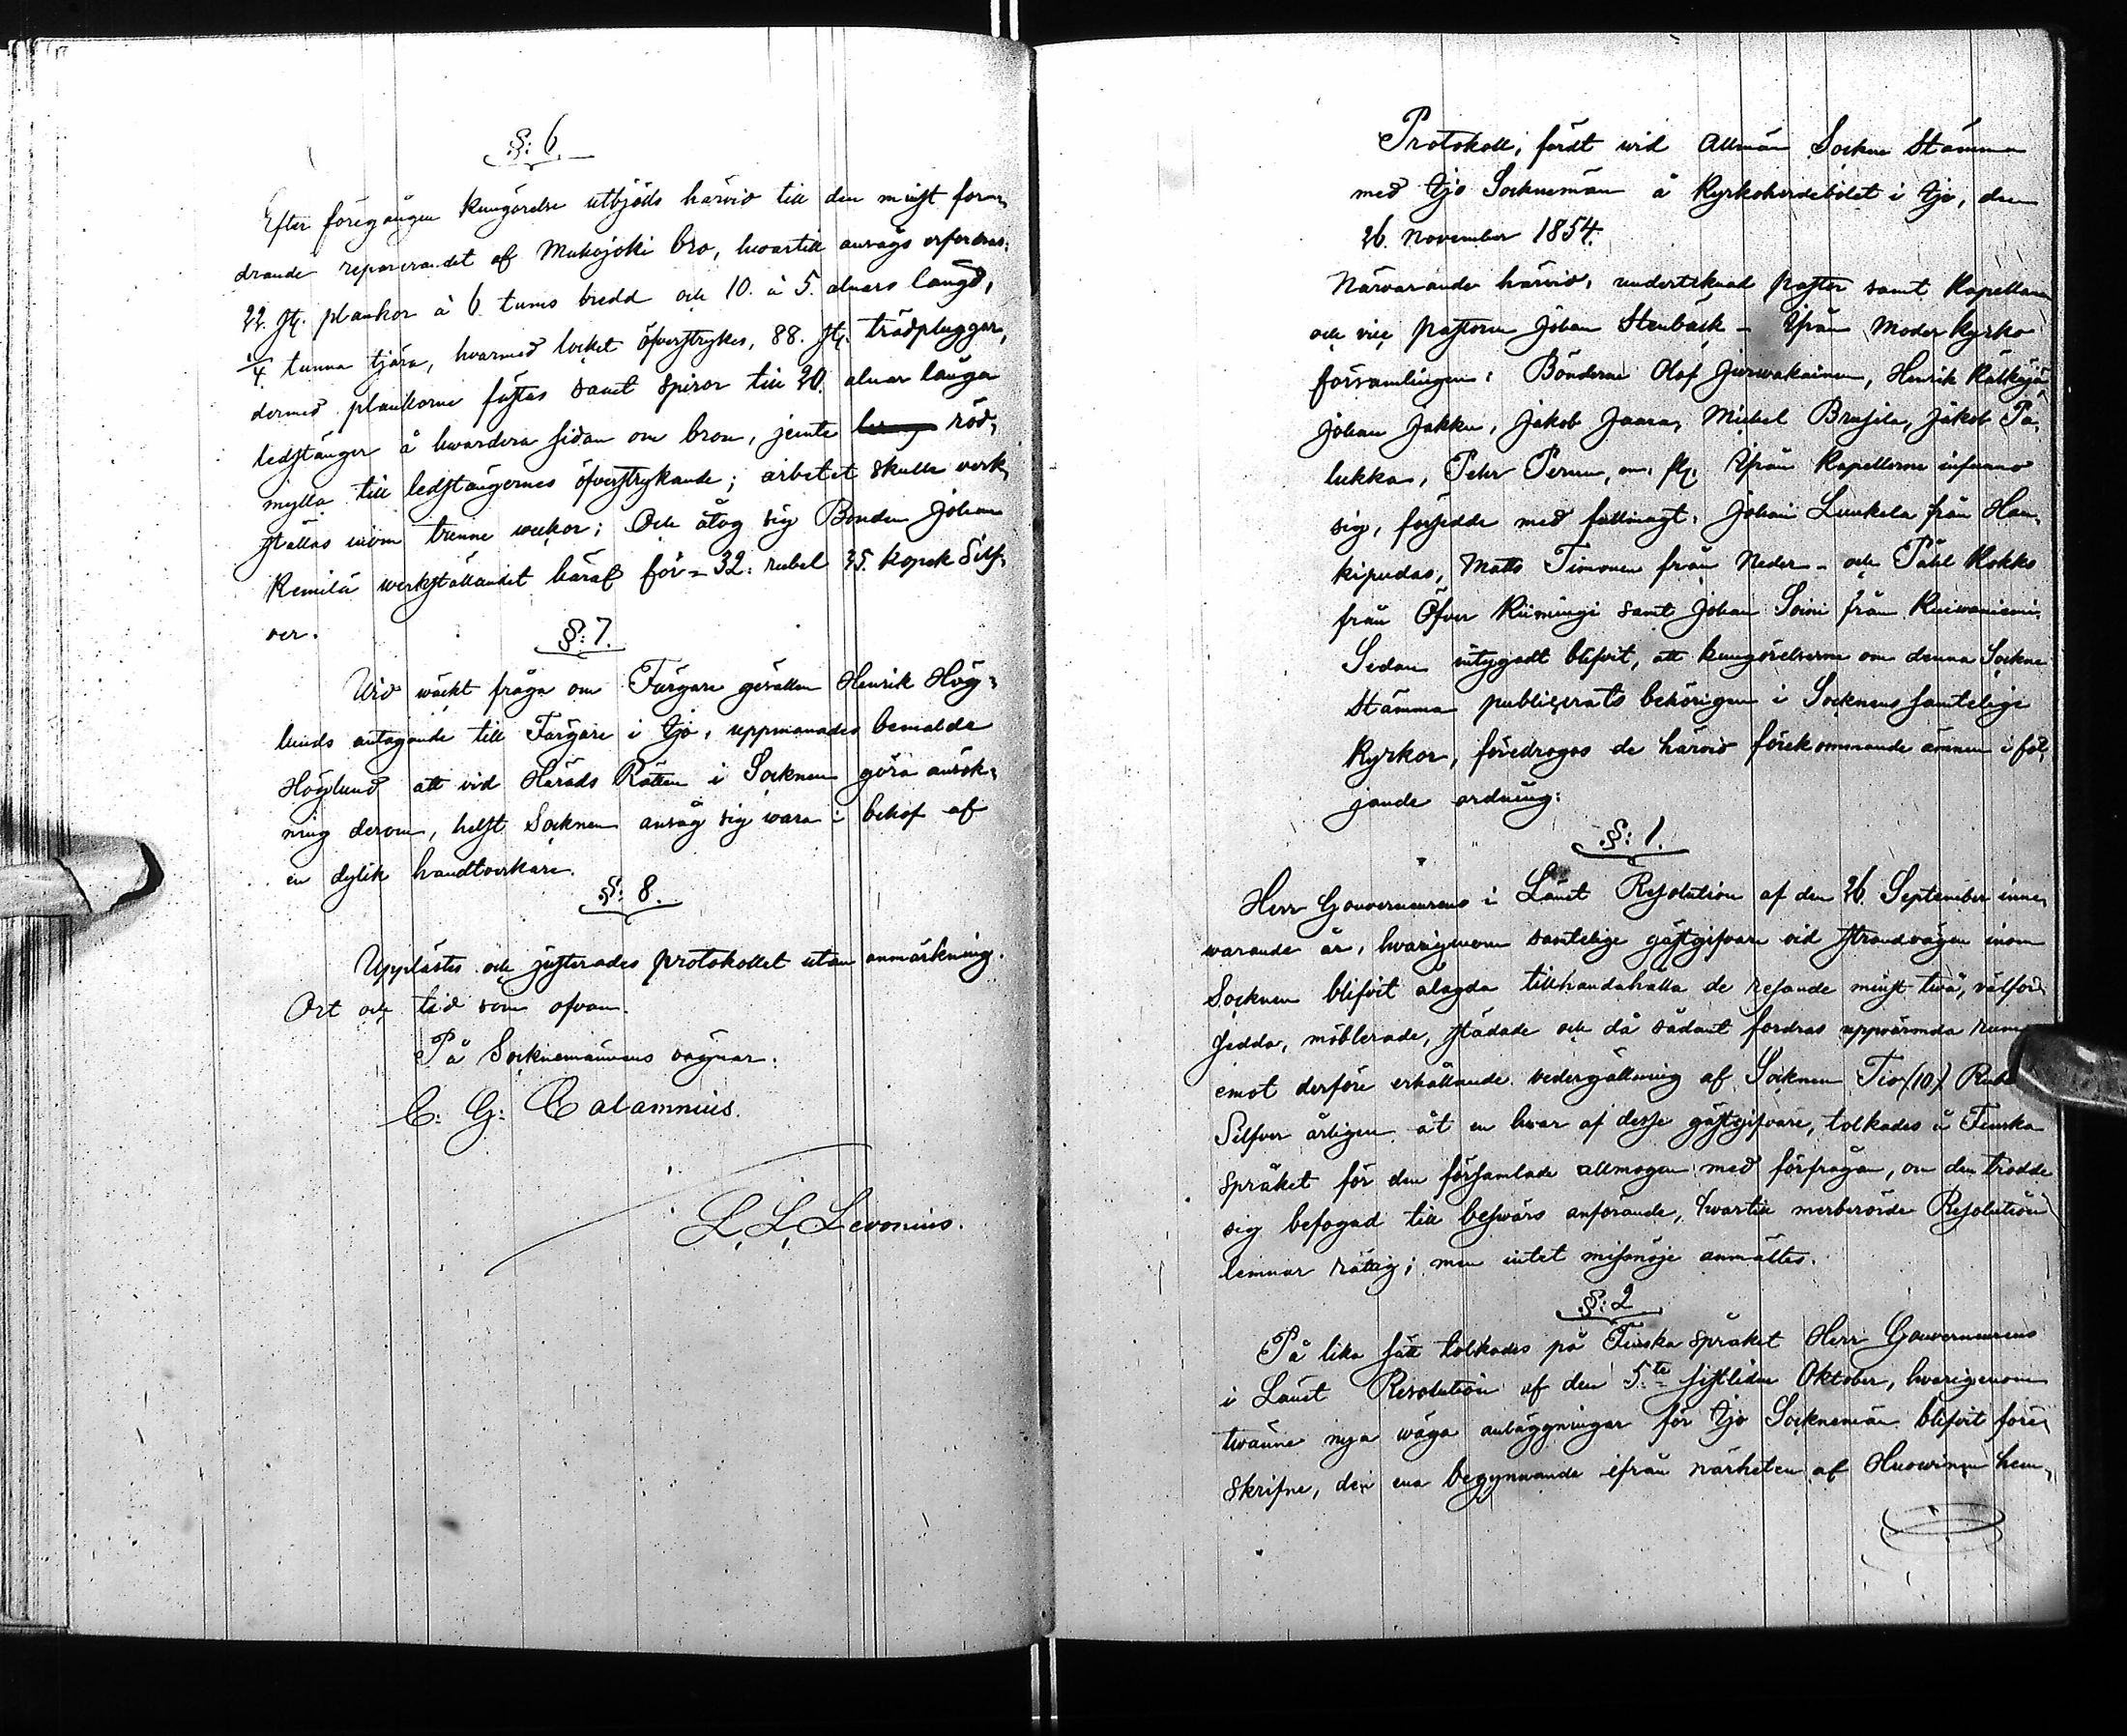 §: 6.
Efter föregången kungörelse utbjöds härvid till den minst for-
drande reparerandet af Mukojoki bro, hwartill ansågs erfordras:
22. st. plankor à 6 tums bredd och 10. à 5. alnars längd,
1/4 tunna tjära, hvarmed locket öfverstrykes, 88. st. trädpluggar,
dermed plankorne fästas samt spiror till 20 alnar långa
ledstänger å hwardera sidan om bron, jemte röd-
mylla till ledstängernes öfverstrykande; arbetet skulle verk-
ställas inom trenne veckor; Och åtog sig Bonden Johan
Remilä werkställandet häraf för = 32: rubel 35. kopek Silf-
ver.
§: 7.
Wid wäckt fråga om Färgare gesällen Henrik Hög-
lunds antagande till Färgare i Ijo, uppmanades bemälde
Höglund att vid Härads Rätten i Socknen göra ansök-
ning derom, helst Socknen ansåg sig wara i behof af
en dylik handtverkare.
§: 8.
Upplästes och justerades protokollet utan anmärkning.
Ort och tid som ofvan.
På Socknemännens vägnar:
C. G: Calamnius.
L. L. Levonius.
Protokoll, fördt wid Allmän Sockne Stämma
med Ijo Socknemän å Kyrkoherdebolet i Ijo, den
26. November 1854.
Närvarande härvid, undertecknad pastor samt Kapellan
och vice pastorn Johan Stenbäck – Ifrån Moder kyrko
församlingen: Bönderne Olof Jurwakainen, Henrik Kälkäjä
Johan Jakku, Jakob Jaara, Michel Brusila, Jakob Pa-
lukka, Petter Pernu, m. fl. Ifrån Kapellerne infunno
sig, försedde med fullmagt: Johan Luukela från Hau-
kipudas, Matts Timonen från Neder- och Påhl Kokko
från Öfver Kiimingi samt Johan Soini från Kuivaniemi.
Sedan intygadt blifvit, att kungörelserne om denna Sockne
Stämma publicerats behörigen i Socknens samtelige
Kyrkor, föredrogos de härvid förekommande ämnen i föl-
jande ordning:
§: 1.
Herr Gouverneurens i Länet Resolution af den 26. September inne-
warande år, hvarigenom samtelige gästgifvare vid strandvägen inom
Socknen blifvit ålagda tillhandahålla de resande minst två, välför-
sedda, möblerade, städade och då sådant fordras uppvärmda rum
emot derföre erhållande vedergällning af Socknen Tio (10) Rubel
Silfver årligen åt en hvar af desse gästgifvare, tolkades å Finska
språket för den församlade allmogen med förfrågan, om den trodde
sig befogad till beswärs anförande, hwartill merberörde Resolution
lemnar rättig; men intet missnöje anmältes.
§: 2
På lika sätt tolkades på Finska språket Herr Gouverneurens
i Länet Resolution af den 5:te sistliden Oktober, hvarigenom
twänne nya wäga anläggningar för Ijo Socknemän blifvit före-
skrifne, den ena begynnande ifrån närheten af Huowinen hem-